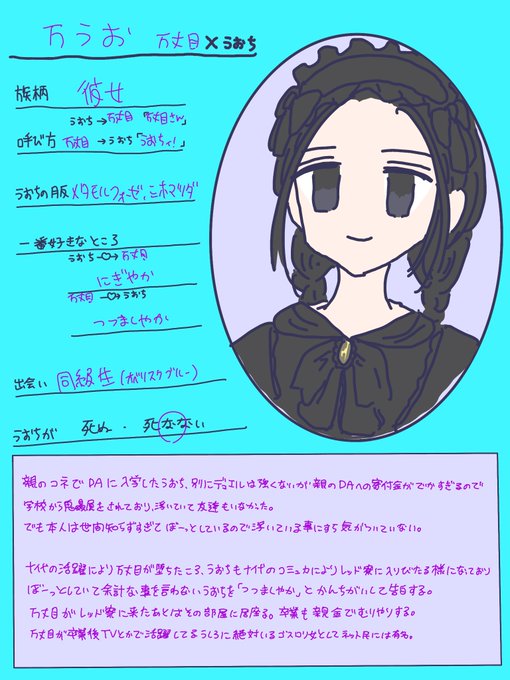 万うお 万丈目×うおち
族柄 彼女
うおち→万丈目「万丈目さん」
呼び方 万丈目→うおち「うおちィ!」
うおちの服 メタモルフォーゼ、ミホマツダ
一番好きなところ
うおち→万丈目
にぎやか
万丈目→うおち
つつましやか
出会い 同級生(オベリスクブルー)
うおちが 死ぬ・死なない
親のコネでDAに入学したうおち、別にデュエルは強くないが親のDAへの寄付金がでかすぎるので
学校から贔屓をされており、浮いていて友達もいなかった。
でも本人は世間知らずすぎてぼーっとしているので浮いている事にすら気がついていない。
十代の活躍により万丈目が堕ちたころ、うおちも十代のコミュ力によりレッド寮に入りびたる様になっており
ぼーっとしていて余計な事を言わないうおちを「つつましやか」とかんちがいして告白する。
万丈目がレッド寮に来たあとはその部屋に居座る。卒業も親金でむりやりする。
万丈目が卒業後TVとかで活躍してるうしろに絶対いるゴスロリ女としてネット民には有名。